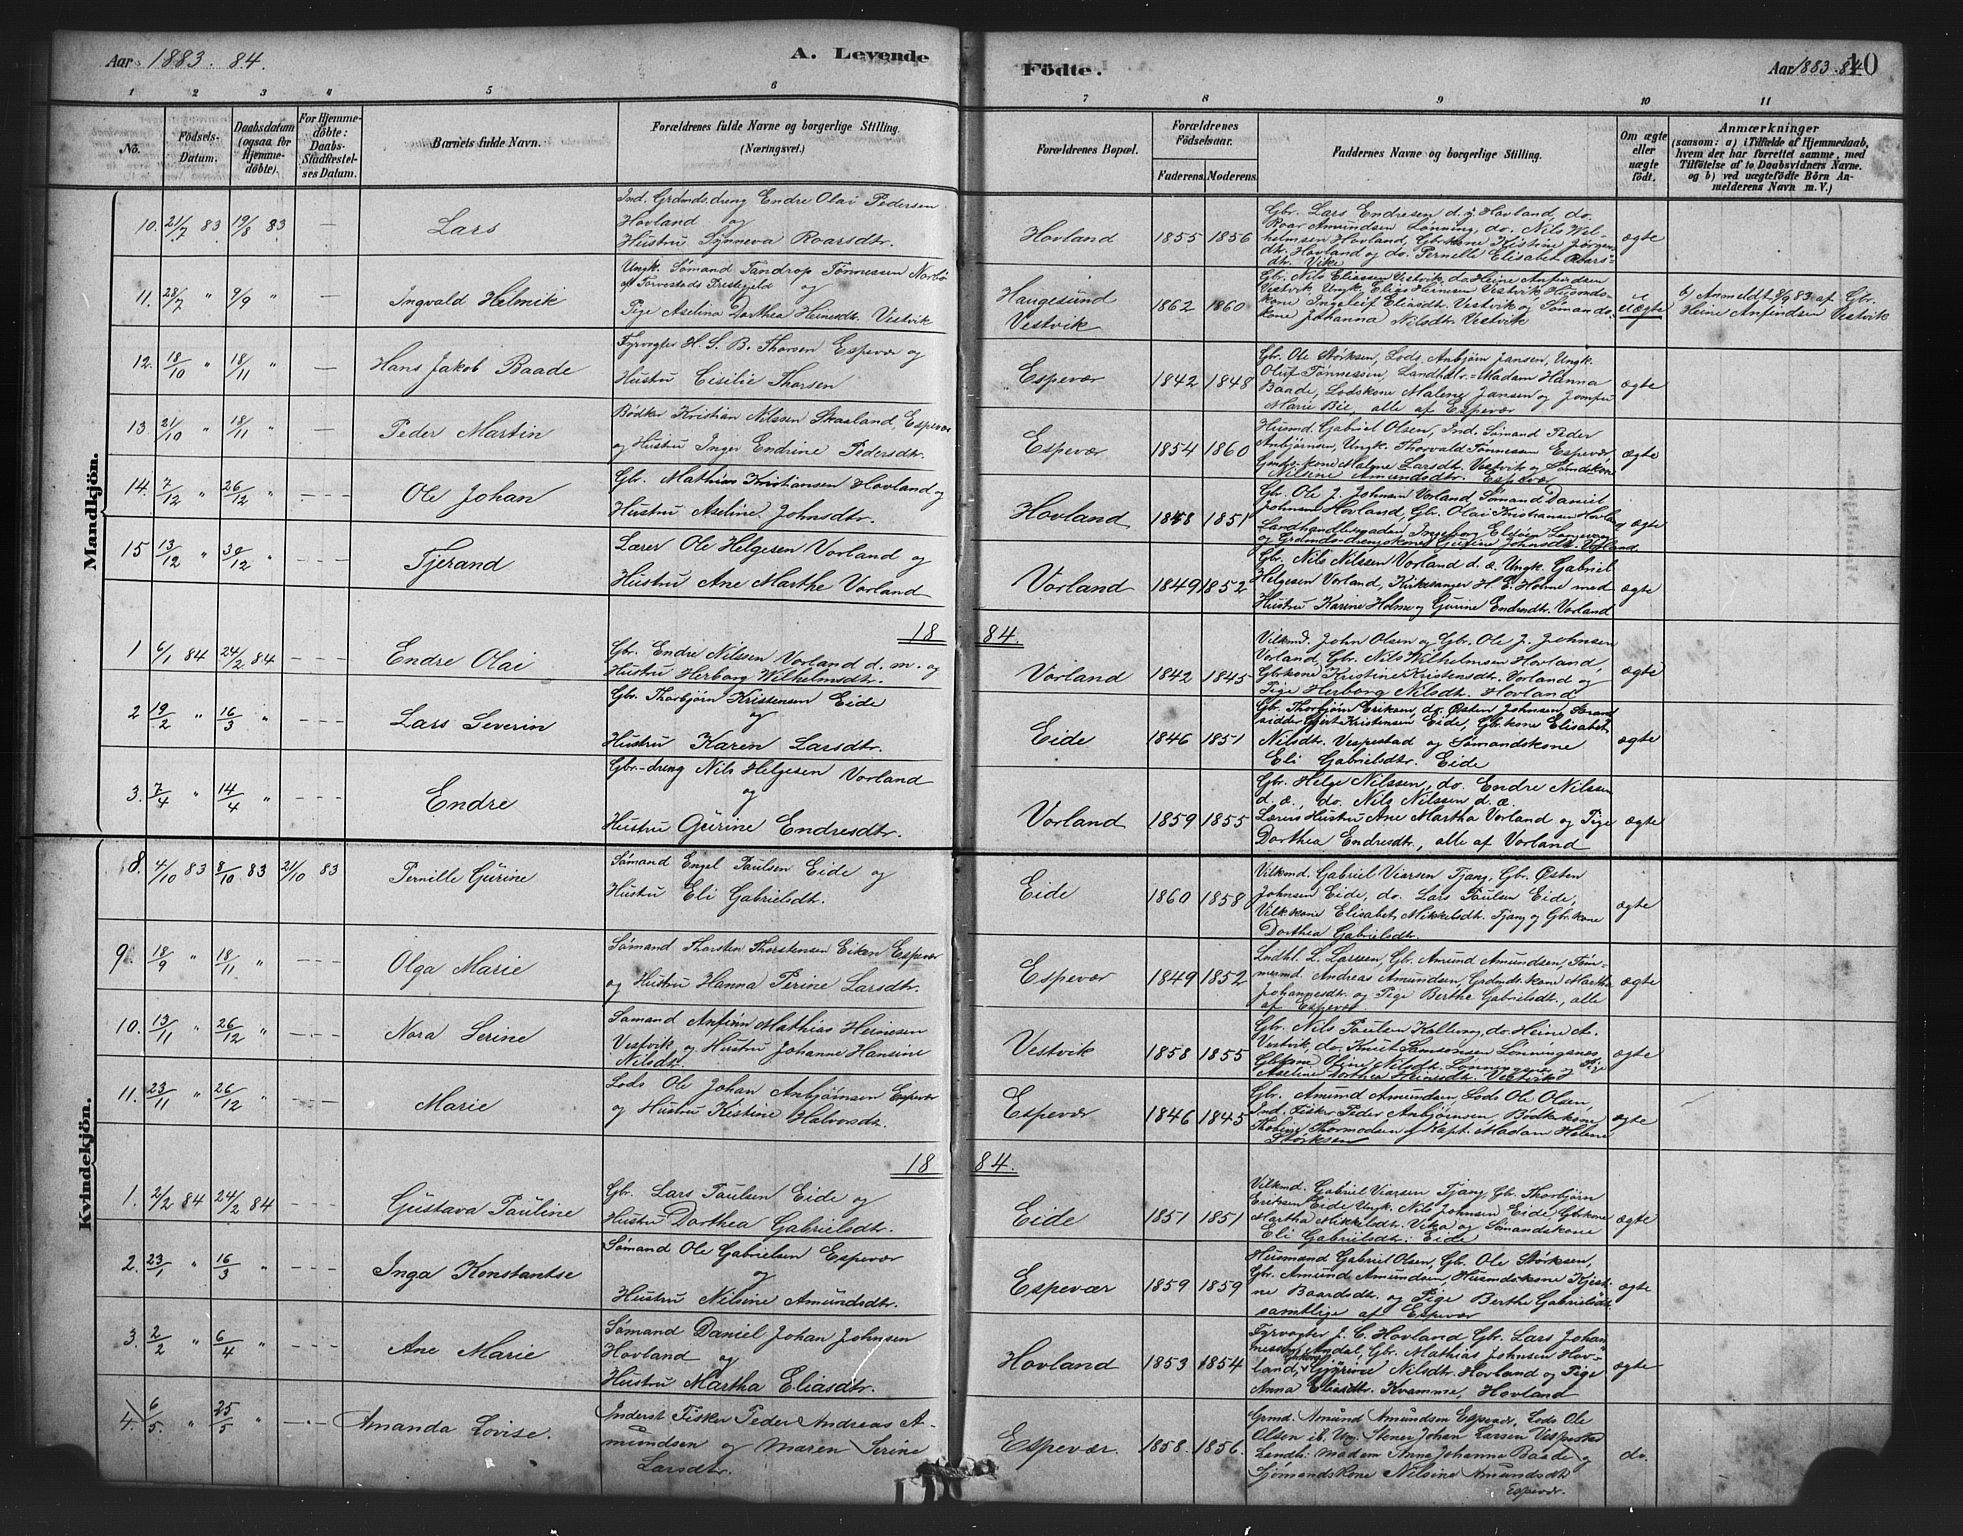 Aar 1883. 84.
A. Levende
Födte.
Aar 1883. 84
10
1 2 3 4 5 6 7 8 9 10 11
No.
Födsels-
Datum.
Daabsdatum
(ogsaa for
Hjemme-
döbte).
For Hjemme-
döbte:
Daabs-
Stadfæstel-
ses Datum.
Barnets fulde Navn.
Forældrenes fulde Navne og borgerlige Stilling.
(Næringsvei.)
Forældrenes Bopæl.
Forældrenes
Födselsaar.
Faderens. Moderens.
Faddernes Navne og borgerlige Stilling.
Om ægte
eller
uægte
födt.
Anmærkninger
(saasom: a) i Tilfælde af Hjemmedaab,
hvem der har forrettet samme, med
Tilföielse af to Daabsvidners Navne.
og b) ved uægtefödte Börn An-
melderens Navn m. V.)
Mandkjön.
10. 21/7 83 19/8 83 — Lars
Ind. Grdmds.dreng Endre Olai Pedersen
Hovland og
Hustru Synneva Roarsdtr.
Hovland 1855 1856
Gbr. Lars Endresen d. y. Hovland, do.
Roar Amundsen Lønning, do. Nils Wil-
helmsen Hovland, Gbrkone Kistine Jørgens
dtr. Hovland og do. Pernille Elisabet Roars-
dtr. Vike
ægte
11. 28/7 " 9/9 " — Ingvald Helmik
Ungk. Sømand Tandrop Tønnessen Norbø
af Torvestads Prestegjeld og
Pige Aselina Dorthea Heinesdtr. Vestvik
Haugesund
Vestvik
1862 1860
Gbr. Nils Eliassen Vestvik, do Heine Anfindsen
Vestvik Ungk. Elias Heinesen Vestvik Husmds-
kone Ingeleif Eliasdtr. Vestvik og Sømands-
kone Johanna Nilsdtr. Vestvik
uægte
b) Anmeldt 8/9 83 af Gbr.
Heine Anfindsen Vestvik
12. 18/10 " 18/11 " — Hans Jakob Baade
Fyrvogter H. S. B. Thorsen Espevær og
Hustru Cisilie Thorsen
Espevær 1842 1848
Gbr. Ole Størksen, Lods Anbjørn Jansen, Ungk.
Oluf Tønnessen, Landhdlr.-Madam Hanna
Baade, Lodskone Malene Jansen og Jomfru
Marie Bie, alle af Espevær
ægte
13 21/10 " 18/11 " — Peder Martin
Bødker Kristian Nilssen Skaaland, Espevær
og Hustru Inger Endrine Pedersdtr.
Espevær 1854 1860
Husmd. Gabriel Olsen, Ind. Sømand Peder
Anbjørnsen, Ungk. Thorvald Tønnessen Espevær,
Malene Larsdtr. Vestvik og
Nilsine Amundsdtr. Espevær
ægte
14. 7/12 " 26/12 " - - - Ole Johan
Gbr. Mathias Kristiansen Hovland og
Hustru Aseline Johnsdtr.
Hovland 1848 1851
Gbr. Ole J. Johnsen Vorland Sømand Daniel
Johnsen Hovland, Gbr. Olai Kristiansen Hovland
Ingeborg
Johnsdtr. Vorland
ægte
15 13/12 " 30/12 " - - - Tjerand
Lærer Ole Helgesen Vorland og
Hustru Ane Marthe Vorland
Vorland 1849 1852
Gbr. Nils Nilssen Vorland d. æ. Ungk. Gabriel
Helgesen Vorland, Kirkesanger H. E. Holme med
Hustru Karine Holme og Gurine Endresdtr. Vorland
ægte
18 84.
1 6/1 84 24/2 84 - - - Endre Olai
Gbr. Endre Nilssen Vorland d. m. og
Hustru Herborg Wilhelmsdtr.
Vorland 1842 1845
Vilkmd. John Olsen og Gbr. Ole J. Johnsen
Vorland, Gbr. Nils Wilhelmsen Hovland,
Gbrkone Kristine Kristensdtr. Vorland og
Pige Herborg Nilsdtr. Hovland
ægte
2 19/2 " 16/3 " - - - Lars Severin
Gbr. Thorbjørn Kristensen Eide
og
Hustru Karen Larsdtr.
Eide 1846 1851
Gbr. Thorbjørn Eriksen, do. Østen Johnsen, Strand
sidder Gjert Kristensen, Eide, Gbr.kone Elisabet
Nilsdtr. Vespestad og Sømandskone
Eli Gabrielsdtr. Eide
ægte
3. 7/4 " 14/4 " - - - Endre
Gbr.-dreng Nils Helgesen Vorland
og
Hustru Gurine Endresdtr.
Vorland 1859 1855
Gbr. Helge Nilssen, do. Endre Nilssen
d. æ., do. Nils Nilssen d. æ.
Lærers Hustru Ane Martha Vorland og Pige
Dorthea Endresdtr., alle af Vorland
ægte
Kvindekjön.
8. 4/10 83 8/10 83 21/10 83 Pernille Gurine
Sømand Engel Paulsen Eide og
Hustru Eli Gabrielsdtr.
Eide 1860 1858
Vilkmd. Gabriel Viarsen Tjang, Gbr. Østen
Johnsen Eide, do. Lars Paulsen Eide,
Vilk.kone Elisabet Mikkelsdtr. Tjang og Gbr.kone
Dorthea Gabrielsdtr.
ægte
9. 18/9 " 18/11 " - - - Olga Marie
Sømand Thorsten Thorstensen Eiken Espevær
og Hustru Hanna Perine Larsdtr.
Espevær 1849 1852
Lndhl. L. Larssen, Gbr. Amund Amundsen, Tøm-
mermd. Andreas Amundsen, Grdmds.kone Martha
Johannesdtr. og Pige Berthe Gabrielsdtr., alle
af Espevær
ægte
10. 13/11 " 26/12 " - - - Nora Serine
Sømand Anfinn Mathias Heinesen
Vestvik og Hustru Johanne Hansine
Nilsdtr.
Vestvik 1858 1855
Gbr. Nils Paulsen Kallevag, do. Heine A.
Vestvik, do. Knut Samsonsen Lønningsnes
Gbrkone Oline Nilsdtr. og
Aseline Dorthea Heinesdtr. Vestvik
ægte
11. 23/11 " 26/12 " - - - Marie
Lods Ole Johan Anbjørnsen Espevær
og Hustru Kistine Halvorsdtr.
Espevær 1846 1845
Gbr. Amund Amundsen, Lods Ole Olsen,
Ind. Fisker Peder Anbjørnsen, Bødkerkone
Thobine Thormodsen & Kapt. Madam Helene
Størksen
ægte
18 84.
1. 2/2 84 24/2 84 - - - Gustava Pauline
Gbr. Lars Paulsen Eide og
Hustru Dorthea Gabrielsdtr.
Eide 1851 1851
Vilkmd. Gabriel Viarsen Tjang, Gbr. Thorbjørn
Eriksen Eide Ungk. Nils Johnsen Eide, Gbrkone
Martha Mikkelsdtr. Vika og Sømandskone
Eli Gabrielsdtr. Eide
ægte
2. 23/1 " 16/3 " - - - Inga Konstantse
Sømand Ole Gabrielsen Espevær
og
Hustru Nilsine Amundsdtr.
Espevær 1859 1859
Husmand Gabriel Olsen, Gbr. Ole Størksen,
Gbr. Amund Amundsen, Husmdskone Kjesti-
ne Baardsdtr. og Pige Berthe Gabrielsdtr.
samtlige af Espevær
ægte
3. 2/2 " 6/4 " - - - Ane Marie
Sømand Daniel Johan Johnsen
Hovland og
Hustru Martha Eliasdtr.
Hovland 1853 1854
Fyrvogter J. C. Hovland, Gbr. Lars Johan-
nessen Andal, Gbr. Mathias Johnsen Hov-
land, Gbrkone Gjyrine Nilsdtr. Hovland og Pige
Anna Eliasdtr. Kvamme, Hovland
ægte
4. 6/5. " 25/5 " - - - Amanda Lovise.
Inderst Fisker Peder Andreas A-
mundsen og Maren Serine
Larsdtr.
Espevær. 1858. 1856.
Grmd. Amund Amundsen Espevær, Lods Ole
Olsen ib. Ung. Stener Johan Larsen Vespestad
Landh. madam Anna Johanne Baade og
Sjømandskone Nilsine Amundsdtr.
Espevær.
do.